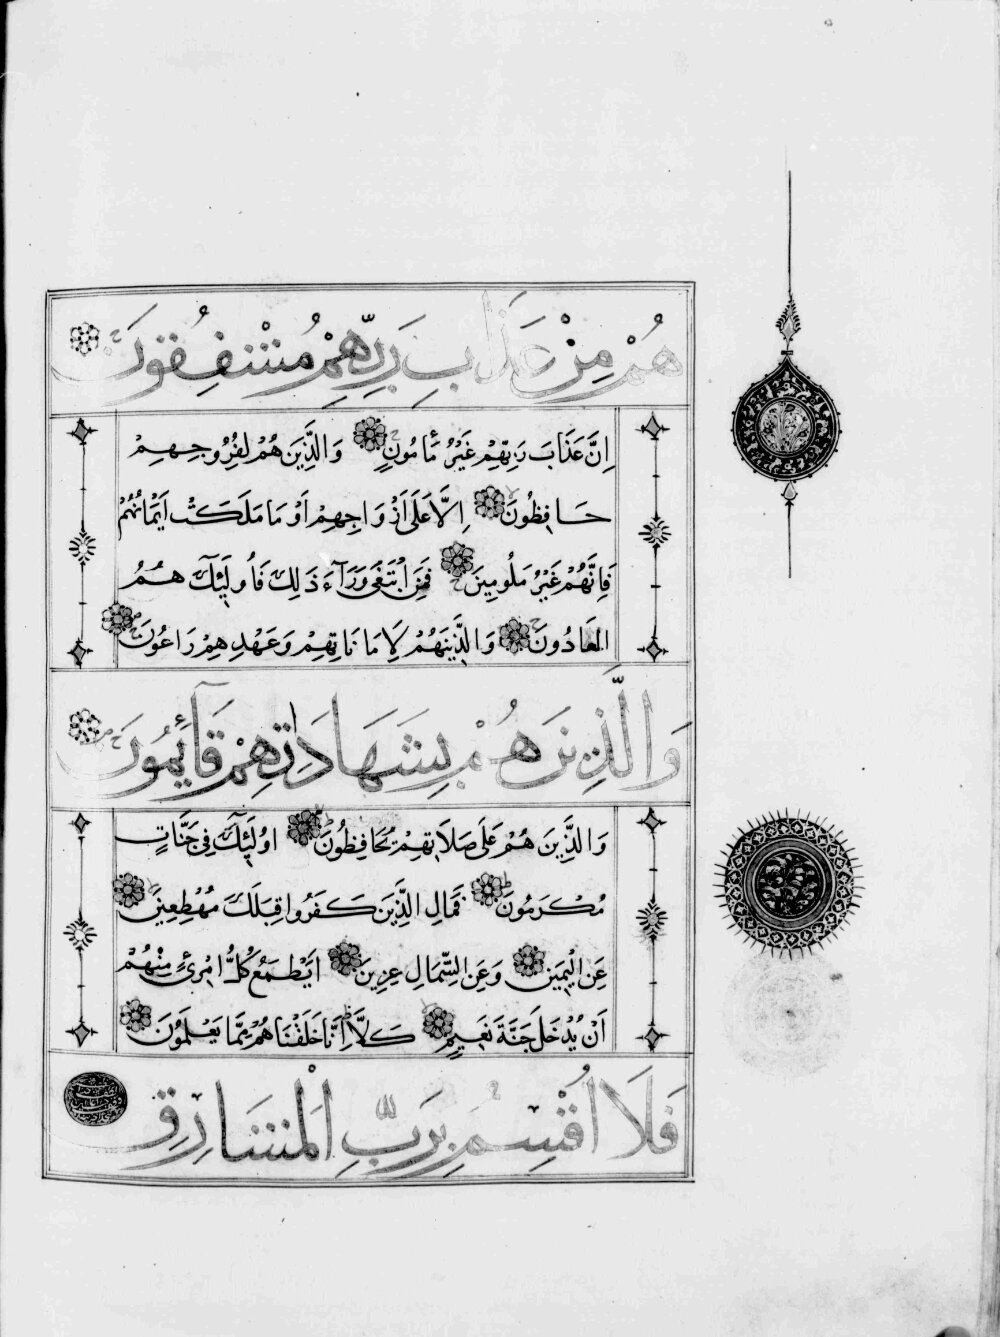 هُمْ مِنْ عَذَابِ رَبِّهِمْ مُشْفِقُونَ
اِنَّ عَذَابَ رَبِّهِمْ غَيْرُ مَأْمُونٍ وَالَّذِينَ هُمْ لِفُرُوجِهِمْ
حَافِظُونَ اِلَّا عَلَى اَزْوَاجِهِمْ اَوْ مَا مَلَكَتْ اَيْمَانُهُمْ
فَاِنَّهُمْ غَيْرُ مَلُومِينَ فَمَنِ ابْتَغَى وَرَآءَ ذَلِكَ فَاُولَئِكَ هُمُ
الْعَادُونَ وَالَّذِينَ هُمْ لِاَمَانَاتِهِمْ وَعَهْدِهِمْ رَاعُونَ
وَالَّذِينَ هُمْ بِشَهَادَاتِهِمْ قَآئِمُونَ
وَالَّذِينَ هُمْ عَلَى صَلَاتِهِمْ يُحَافِظُونَ اُولَئِكَ فِى جَنَّاتٍ
مُكْرَمُونَ فَمَالِ الَّذِينَ كَفَرُوا قِبَلَكَ مُهْطِعِينَ
عَنِ الْيَمِينِ وَعَنِ الشِّمَالِ عِزِينَ اَيَطْمَعُ كُلُّ امْرِئٍ مِنْهُمْ
اَنْ يُدْخَلَ جَنَّةَ نَعِيمٍ كَلَّا اِنَّا خَلَقْنَاهُمْ مِمَّا يَعْلَمُونَ
فَلَا اُقْسِمُ بِرَبِّ الْمَشَارِقِ